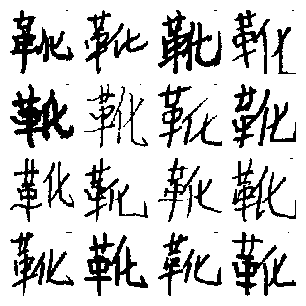 靴靴靴靴
靴靴靴靴
靴靴靴靴
靴靴靴靴